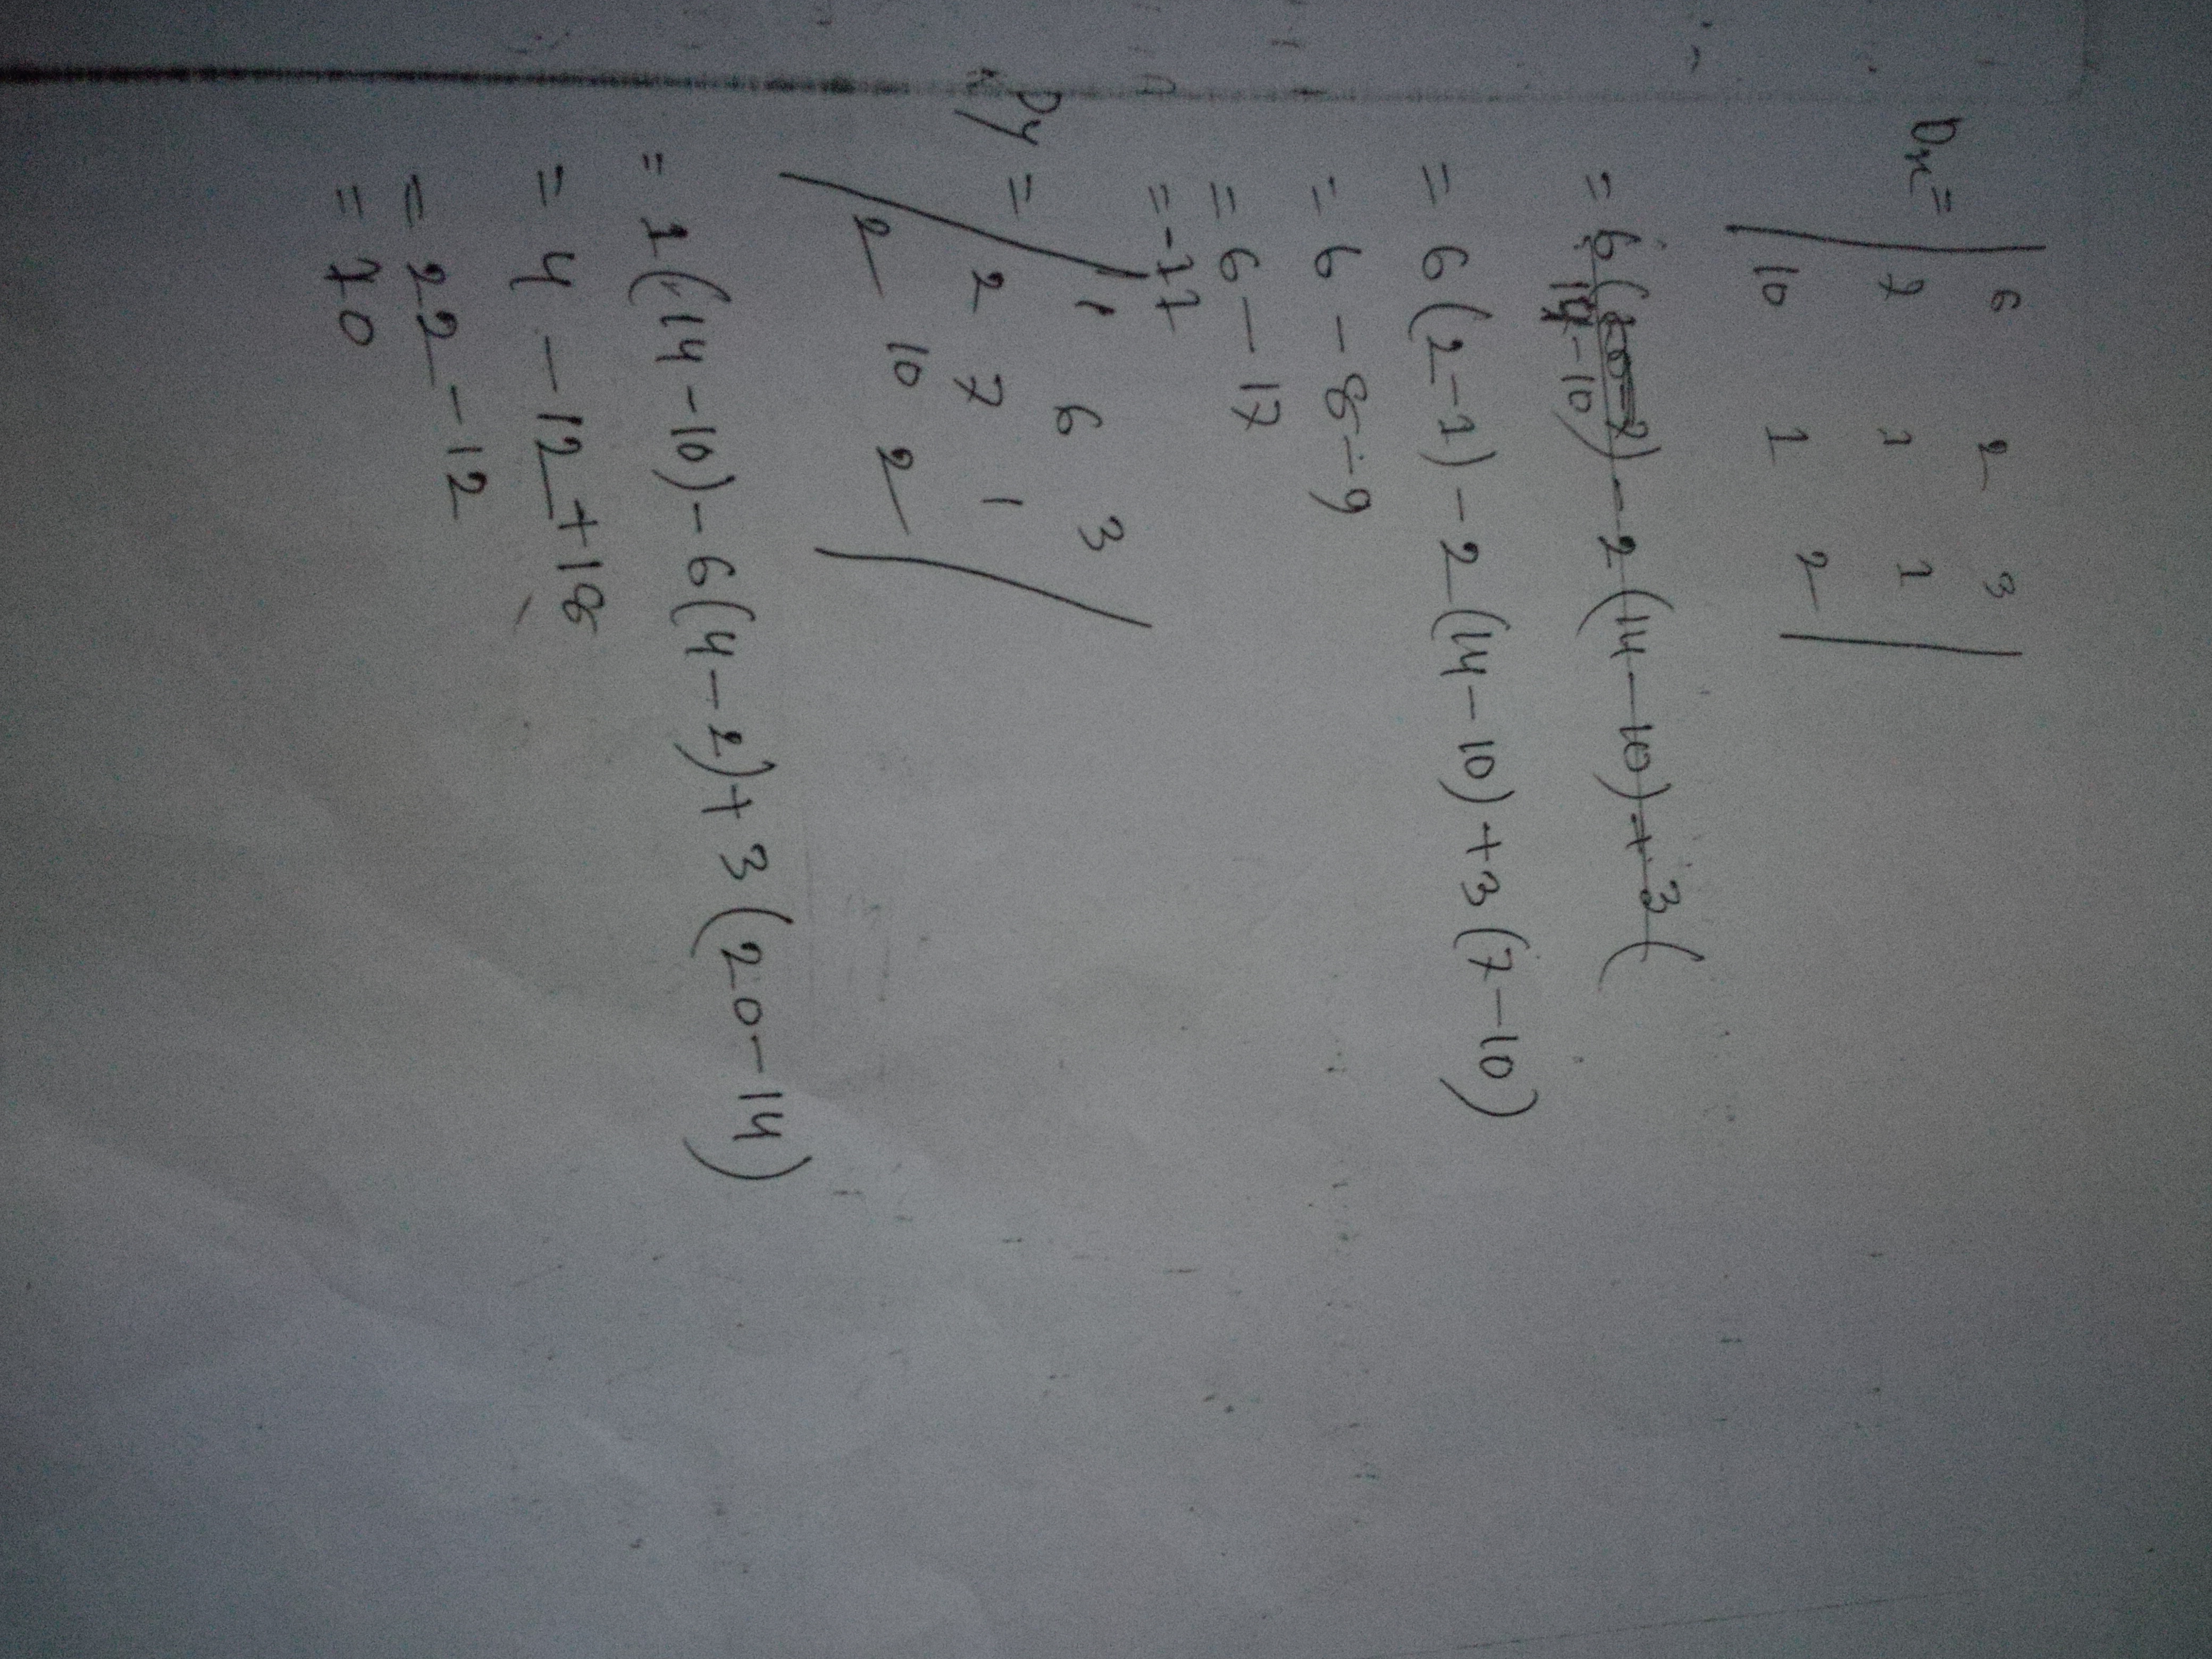 6 2 3
Dx = 7 1 1
10 1 2
= 6( 2) - 2(14-10) + 3(
14-10)
= 6(2-1) - 2(14-10) + 3(7-10)
= 6 - 8 - 9
= 6 - 17
= -11
1 6 3
Dy = 2 7 1
2 10 2
= 1(14-10) - 6(4-2) + 3(20-14)
= 4 - 12 + 18
= 22 - 12
= 10